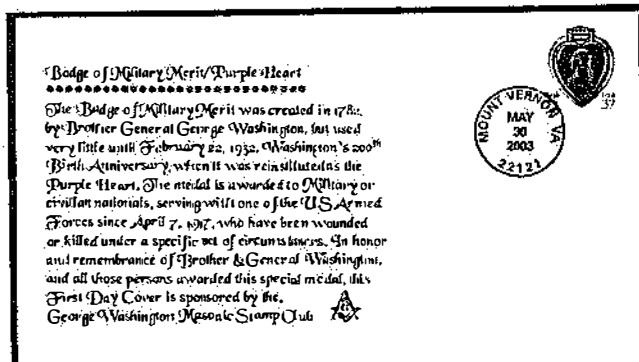 Badge of Military Merit/Purple Heart
The Badge of Military Merit was created in 1782,
by Brother General George Washington, but used
very little until February 22, 1932, Washington's 200th
Birth Anniversary, when it was reinstituted as the
Purple Heart. The medal is awarded to Military or
civilian nationals, serving with one of the U.S. Armed
Forces since April 7, 1917, who have been wounded
or killed under a specific set of circumstances. In honor
and remembrance of Brother & General Washington,
and all those persons awarded this special medal, this
First Day Cover is sponsored by the,
George Washington Masonic Stamp Club
MOUNT VERNON VA
MAY
30
2003
22121
USA
37